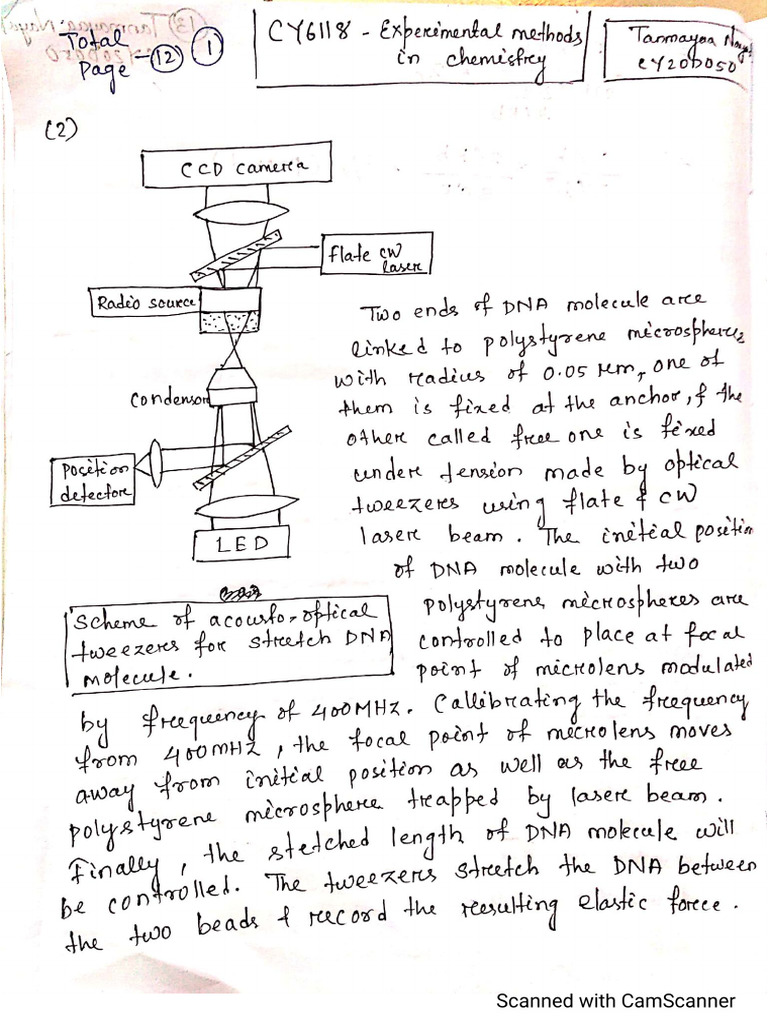 Total
Page - 12
1
CY6118 - Experimental methods
in chemistry
Tanmayaa Nayak
CY20D050
(2)
CCD camera
flate CW
laser
Radio source
Condensor
position
detector
LED
Scheme of acousto-optical
tweezers for stretch DNA
molecule.
Two ends of DNA molecule are
linked to polystyrene microspheres
with radius of 0.05 μm, one of
them is fixed at the anchor, & the
other called free one is fixed
under tension made by optical
tweezers using flate & CW
laser beam. The initial position
of DNA molecule with two
polystyrene microspheres are
controlled to place at focal
point of microlens modulated
by frequency of 400MHz. Callibrating the frequency
from 400MHZ, the focal point of microlens moves
away from initial position as well as the free
polystyrene microsphere trapped by laser beam.
Finally, the stetched length of DNA molecule will
be controlled. The tweezers stretch the DNA between
the two beads & record the resulting elastic force.
Scanned with CamScanner